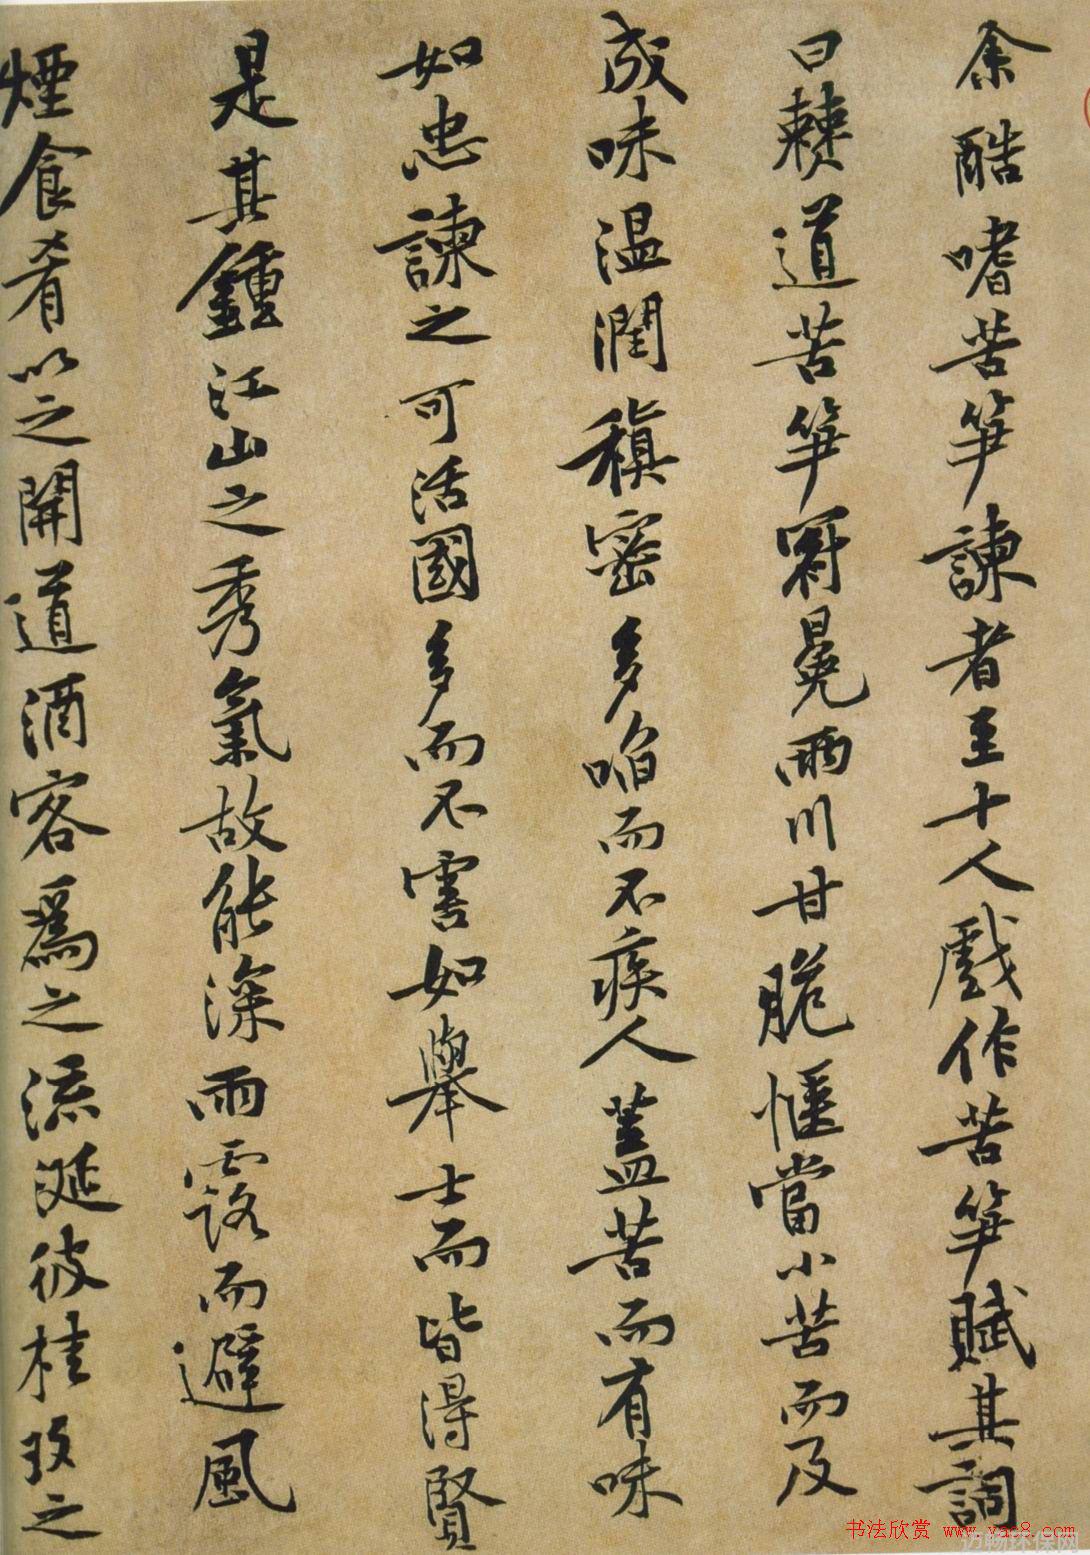 余酷嗜苦笋諫者至十人戲作苦笋賦其詞
曰僰道苦笋冠冕兩川甘脆愜當小苦而及
成味温潤稹密多啗而不疾人蓋苦而有味
如忠諫之可活國多而不害如舉士而皆得賢
是其鍾江山之秀氣故能深雨露而避風
煙食肴以之開道酒客為之流涎彼桂玫之
书法欣赏 www.yac8.com